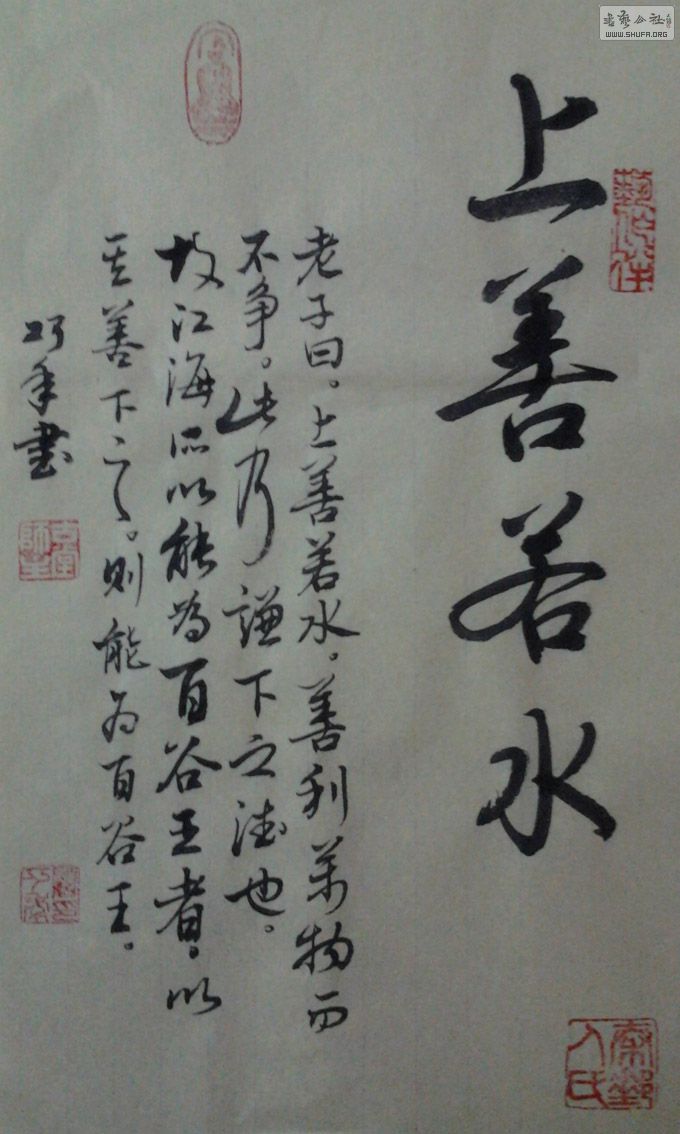 上善若水
老子曰。上善若水。善利万物而
不争。此乃谦下之德也。
故江海所以能为百谷王者。以
其善下之。则能为百谷王。
巧年书
書藝公社
WWW.SHUFA.ORG
人氏